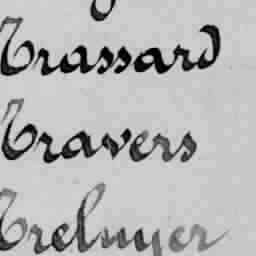 Trassard
Travers
Treluyer